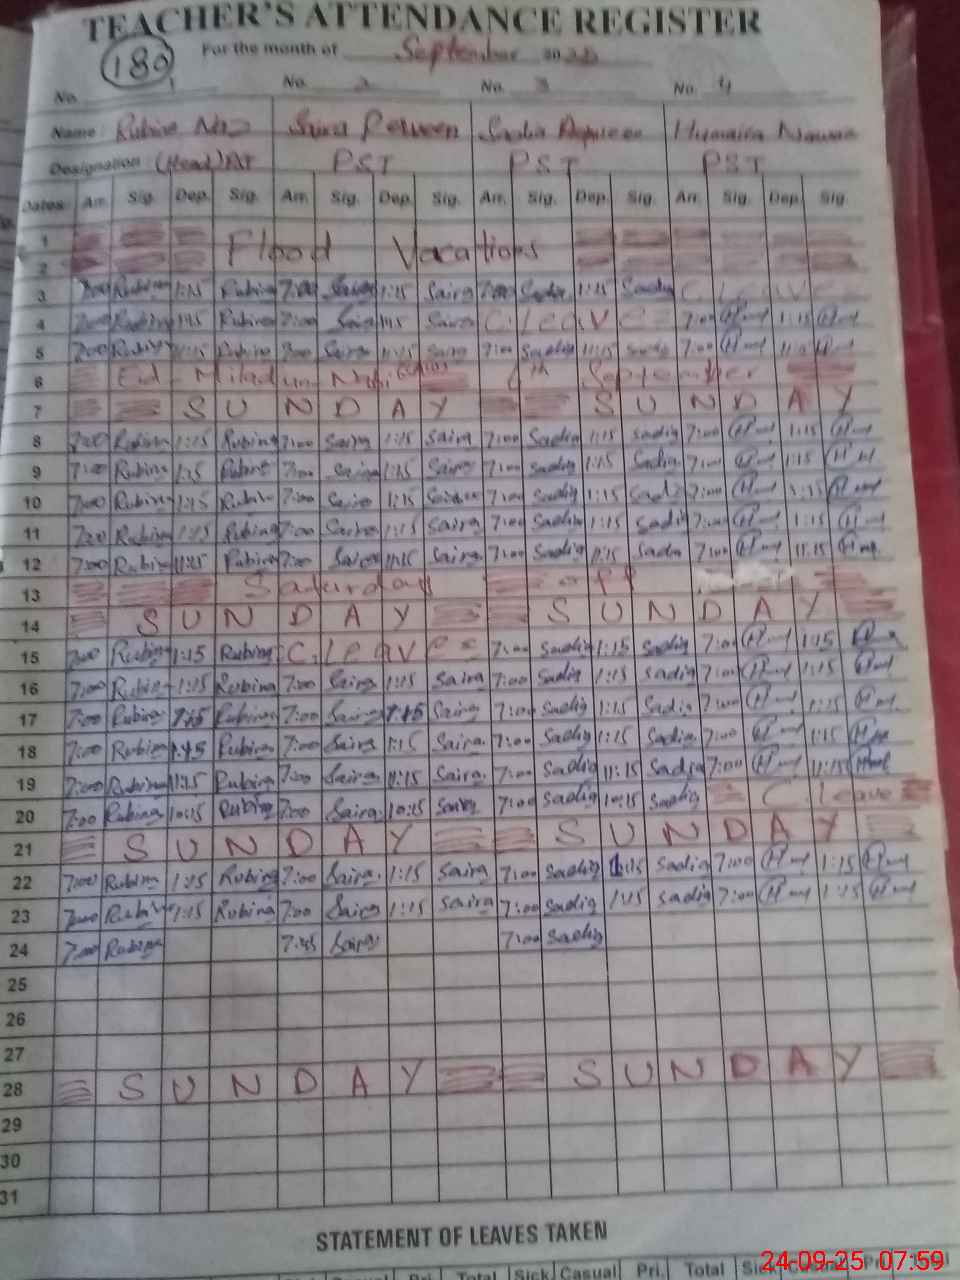 TEACHER'S ATTENDANCE REGISTER
180 For the month of September 20
No. 1 No. 2 No. 3 No. 4
Name: Rubina Naz Saira Perveen Sadia Humaira
Designation: (Head) PST PST PST
Dates Arr. Sig. Dep. Sig. Arr. Sig. Dep. Sig. Arr. Sig. Dep. Sig. Arr. Sig. Dep. Sig.
1
Flood Vacations
2
3 7:00 Rubina 1:15 Rubina 7:00 Saira 1:15 Saira 7:00 Sadia 1:15 Sadia C. Leave
4 7:00 Rubina 1:15 Rubina 7:00 Saira 1:15 Saira C. Leave 7:00 1:15
5 7:00 Rubina 11:15 Rubina 7:00 Saira 11:15 Saira 7:00 Sadia 11:15 Sadia 7:00
6 Eid Milad un Nabi 6th September
7 SUNDAY SUNDAY
8 7:00 Rubina 1:15 Rubina 7:00 Saira 1:15 Saira 7:00 Sadia 1:15 Sadia 7:00 1:15
9 7:00 Rubina 1:15 Rubina 7:00 Saira 1:15 Saira 7:00 Sadia 1:15 Sadia 7:00 1:15
10 7:00 Rubina 1:15 Rubina 7:00 Saira 1:15 Saira 7:00 Sadia 1:15 Sadia 7:00 1:15
11 7:00 Rubina 1:15 Rubina 7:00 Saira 1:15 Saira 7:00 Sadia 1:15 Sadia 7:00 1:15
12 7:00 Rubina 11:15 Rubina 7:00 Saira 11:15 Saira 7:00 Sadia 11:15 Sadia 7:00 11:15
13 Saturday off
14 SUNDAY SUNDAY
15 7:00 Rubina 1:15 Rubina C. Leave 7:00 Sadia 1:15 Sadia 7:00 1:15
16 7:00 Rubina 1:15 Rubina 7:00 Saira 1:15 Saira 7:00 Sadia 1:15 Sadia 7:00 1:15
17 7:00 Rubina 1:15 Rubina 7:00 Saira 1:15 Saira 7:00 Sadia 1:15 Sadia 7:00 1:15
18 7:00 Rubina 1:15 Rubina 7:00 Saira 1:15 Saira 7:00 Sadia 1:15 Sadia 7:00 1:15
19 7:00 Rubina 11:15 Rubina 7:00 Saira 11:15 Saira 7:00 Sadia 11:15 Sadia 7:00 11:15
20 7:00 Rubina 10:15 Rubina 7:00 Saira 10:15 Saira 7:00 Sadia 10:15 Sadia C. Leave
21 SUNDAY SUNDAY
22 7:00 Rubina 1:15 Rubina 7:00 Saira 1:15 Saira 7:00 Sadia 1:15 Sadia 7:00 1:15
23 7:00 Rubina 1:15 Rubina 7:00 Saira 1:15 Saira 7:00 Sadia 1:15 Sadia 7:00 1:15
24 7:00 Rubina Saira 7:00 Sadia
25
26
27
28 SUNDAY SUNDAY
29
30
31
STATEMENT OF LEAVES TAKEN
Casual Pri. Total Sick Casual Pri. Total Sick Casual Pri. Total
24-09-25 07:59